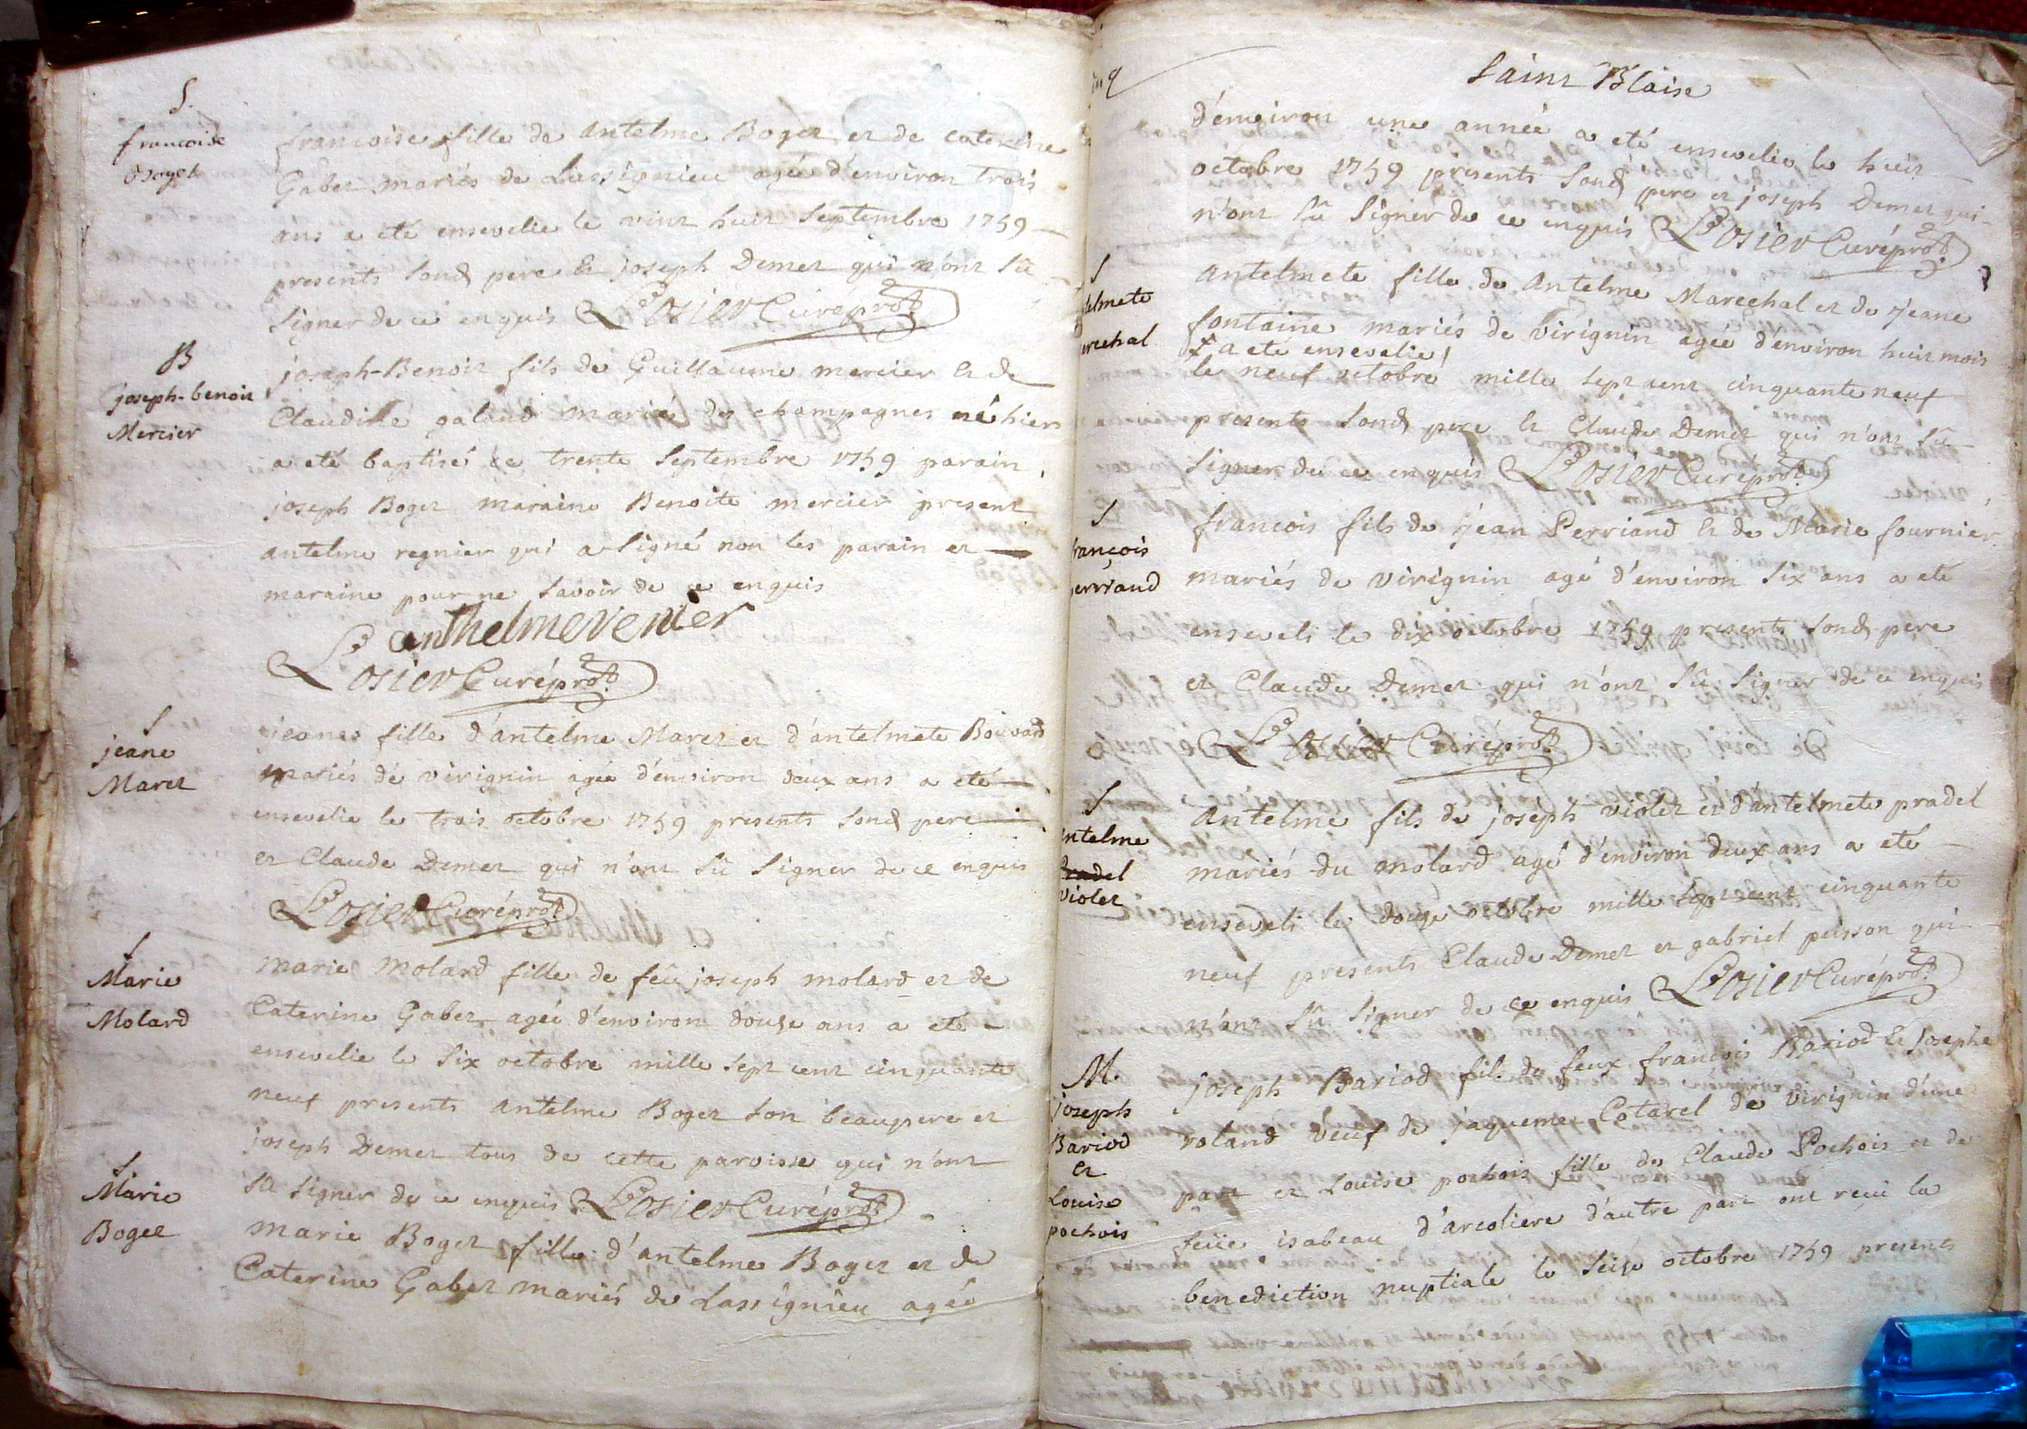 S.
francoise
Boget
francoise fille de antelme Boget et de caterine
Gabet mariés de Lassignieu agée d'environ trois
ans a eté ensevelie le vint huit Septembre 1759
presents Sond pere Et joseph Demet qui n'ont Sû
Signer de ce enquis Losier Curé prot.
B
joseph-benoit
Mercier
joseph-Benoit fils de Guillaume mercier Et de
Claudine galand mariés de champagnes né hier
a eté baptisé ce trente Septembre 1759 parain
joseph Boget maraine Benoite mercier present
antelme regnier qui a Signé non les parain et
maraine pour ne Savoir de ce enquis
anthelme venier
Losier Curé prot.
S
jeane
Maret
jeane fille d'antelme Maret et d'antelmete Bouvard
mariés de virignin agée d'environ deux ans a eté
ensevelie le trois octobre 1759 presents Sond pere
et Claude Demet qui n'ont Sû Signer de ce enquis
Losier Curé prot.
S
Marie
Molard
marie Molard fille de feu joseph molard et de
Caterine Gabet agée d'environ douze ans a eté
ensevelie le Six octobre mille Sept cent cinquante
neuf presents antelme Boget Son beaupere et
joseph Demet tous de cette paroisse qui n'ont
Sû Signer de ce enquis Losier Curé prot.
S
Marie
Boget
marie Boget fille d'antelme Boget et de
Caterine Gabet mariés de Lassignieu agée
Saint Blaise
d'environ une année a eté ensevelie le huit
octobre 1759 presents Sond pere et joseph Demet qui
n'ont Sû Signer de ce enquis Losier Curé prot.
S
telmete
arechal
antelmete fille de antelme Marechal et de jeane
fontaine mariés de virignin agée d'environ huit mois
a eté ensevelie
le neuf octobre mille Sept cent cinquante neuf
presents Sond pere Et Claude Demet qui n'ont Sû
Signer de ce enquis Losier Curé prot.
S
françois
perriand
francois fils de jean Perriand Et de Marie fournier
mariés de virignin agé d'environ Six ans a eté
enseveli le dix octobre 1759 presents Sond pere
et Claude Demet qui n'ont Sû Signer de ce enquis
Losier Curé prot.
S
antelme
Pradel
violet
Antelme fils de joseph violet et d'antelmete pradel
mariés du molard agé d'environ deux ans a eté
enseveli le douze octobre mille Sept cent cinquante
neuf presents Claude Demet et gabriel peisson qui
n'ont Sû Signer de ce enquis Losier Curé prot.
M.
joseph
Bariod
Et
Louise
pochois
joseph Bariod fils de feux francois Bariod Et josephe
roland veuf de jaqueme Cotarel de virignin d'une
part et Louise pochois fille de Claude Pochois et de
feüe isabeau d'arcoliere d'autre part ont reçu la
benediction nuptiale le Seize octobre 1759 presents